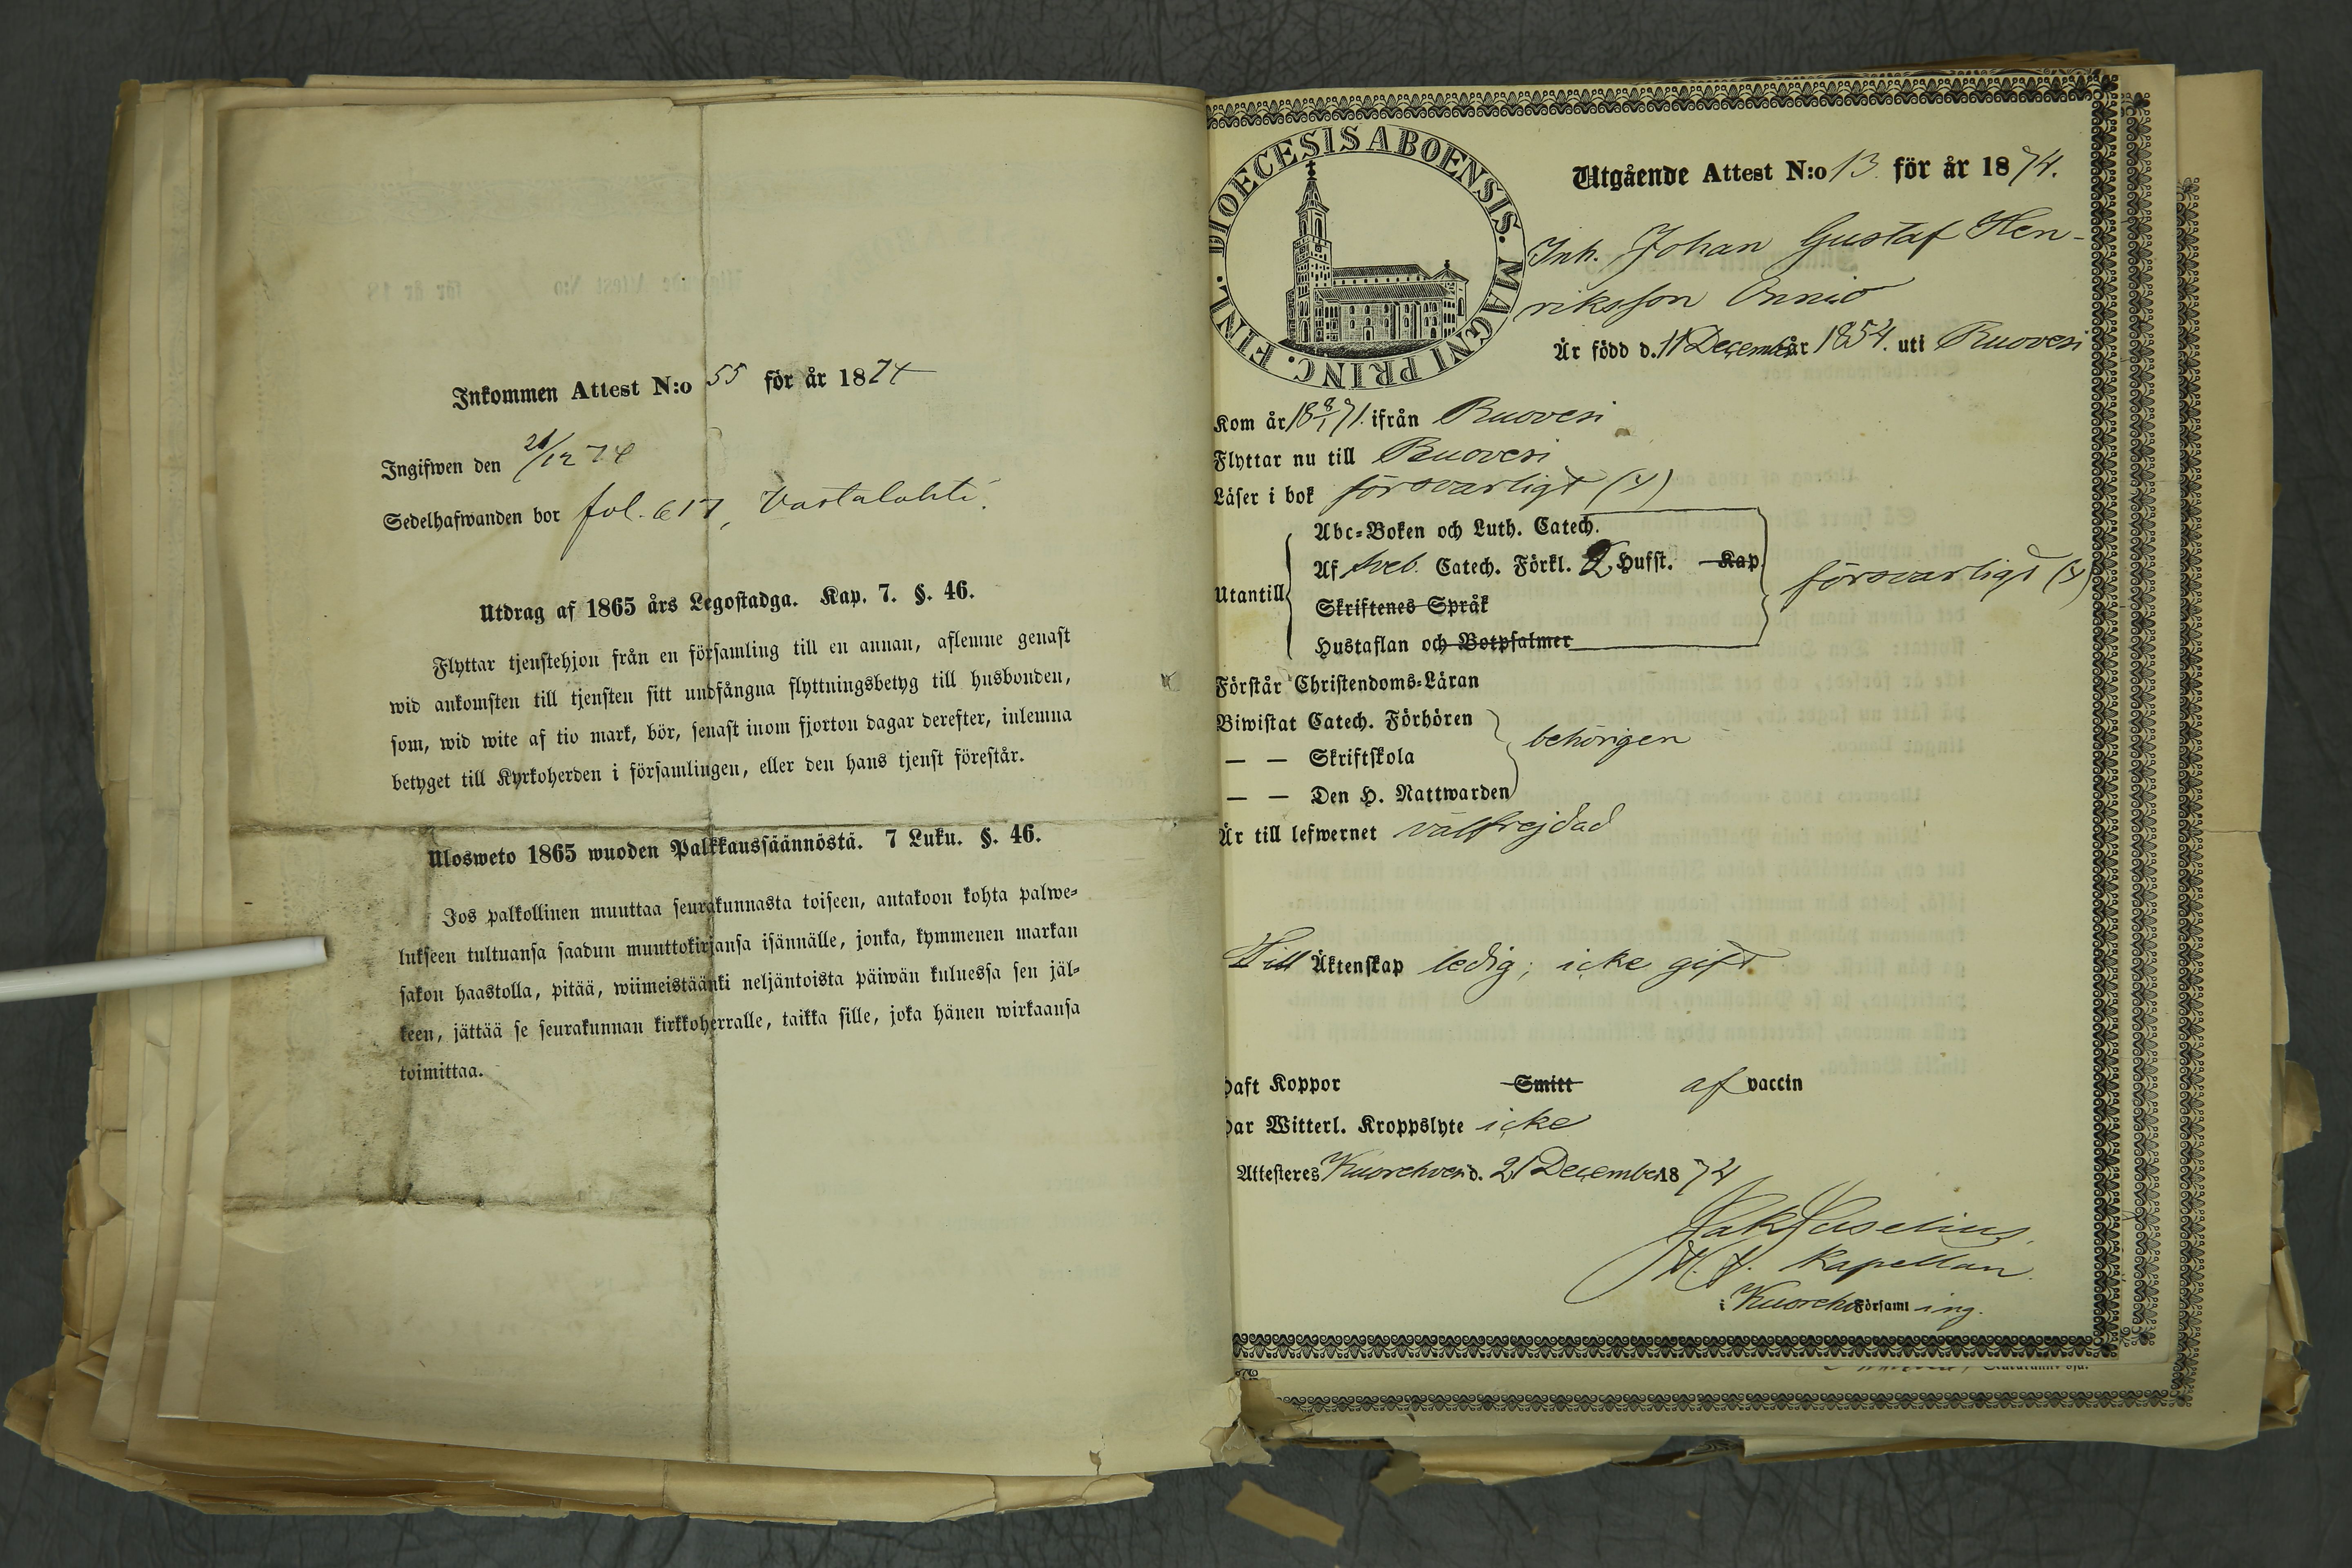 Inkommen Attest N:o 55 för år 1874
Ingifwen den 21/12 74
Sedelhafwanden bor fol. 617, Vastalahti.
Utdrag af 1865 års Legostadga. Kap. 7. §. 46.
Flyttar tjenstehjon från en församling till en annan, aflemne genast
wid ankomsten till tjensten sitt undfångna flyttningsbetyg till husbonden,
som, wid wite af tio mark, bör, senast inom fjorton dagar derefter, inlemna
betyget till Kyrkoherden i församlingen, eller den hans tjenst förestår.
Ulosweto 1865 wuoden Palkkaussäännöstä. 7 Luku. §. 46.
Jos palkollinen muuttaa seurakunnasta toiseen, antakoon kohta palwe-
lukseen tultuansa saadun muuttokirjansa isännälle, jonka, kymmenen markan
sakon haastolla, pitää, wiimeistäänki neljäntoista päiwän kuluessa sen jäl-
keen, jättää se seurakunnan kirkkoherralle, taikka sille, joka hänen wirkaansa
toimittaa.
DIOECESIS ABOENSIS. MAGNI PRINC. FINL.
Utgående Attest N:o 13 för år 1874.
Inh. Johan Gustaf Hen-
riksson Onnio
Är född d. 11 December år 1854. uti Ruovesi
Kom år 18 9/1 71. ifrån Ruovesi
Flyttar nu till Ruovesi
Läser i bok försvarligt (y)
Abc-Boken och Luth. Catech.
Utantill Af Sveb. Catech. Förkl. 2 Hufst. Kap. försvarligt (y)
Skriftenes Språk
Hustaflan och Botpsalmer
Förstår Christendoms-Läran
Biwistat Catech. Förhören
— — Skriftskola behörigen
— — Den H. Nattwarden
Är till lefwernet välfrejdad
Till Äktenskap ledig; icke gift
Haft Koppor Smitt af vaccin
Har Witterl. Kroppslyte icke
Attesteres Kuorehvesi d. 21 December 1874
Jak Haselius.
M. V. Kapellan.
i Kuorehv. Församling.